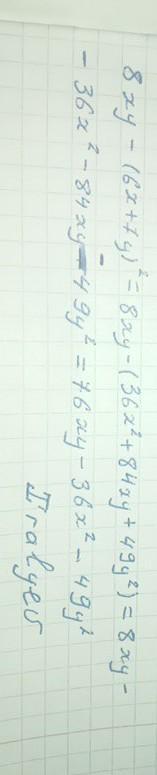 8xy - (6x+7y)² = 8xy - (36x² + 84xy + 49y²) = 8xy -
- 36x² - 84xy - 49y² = 76xy - 36x² - 49y²